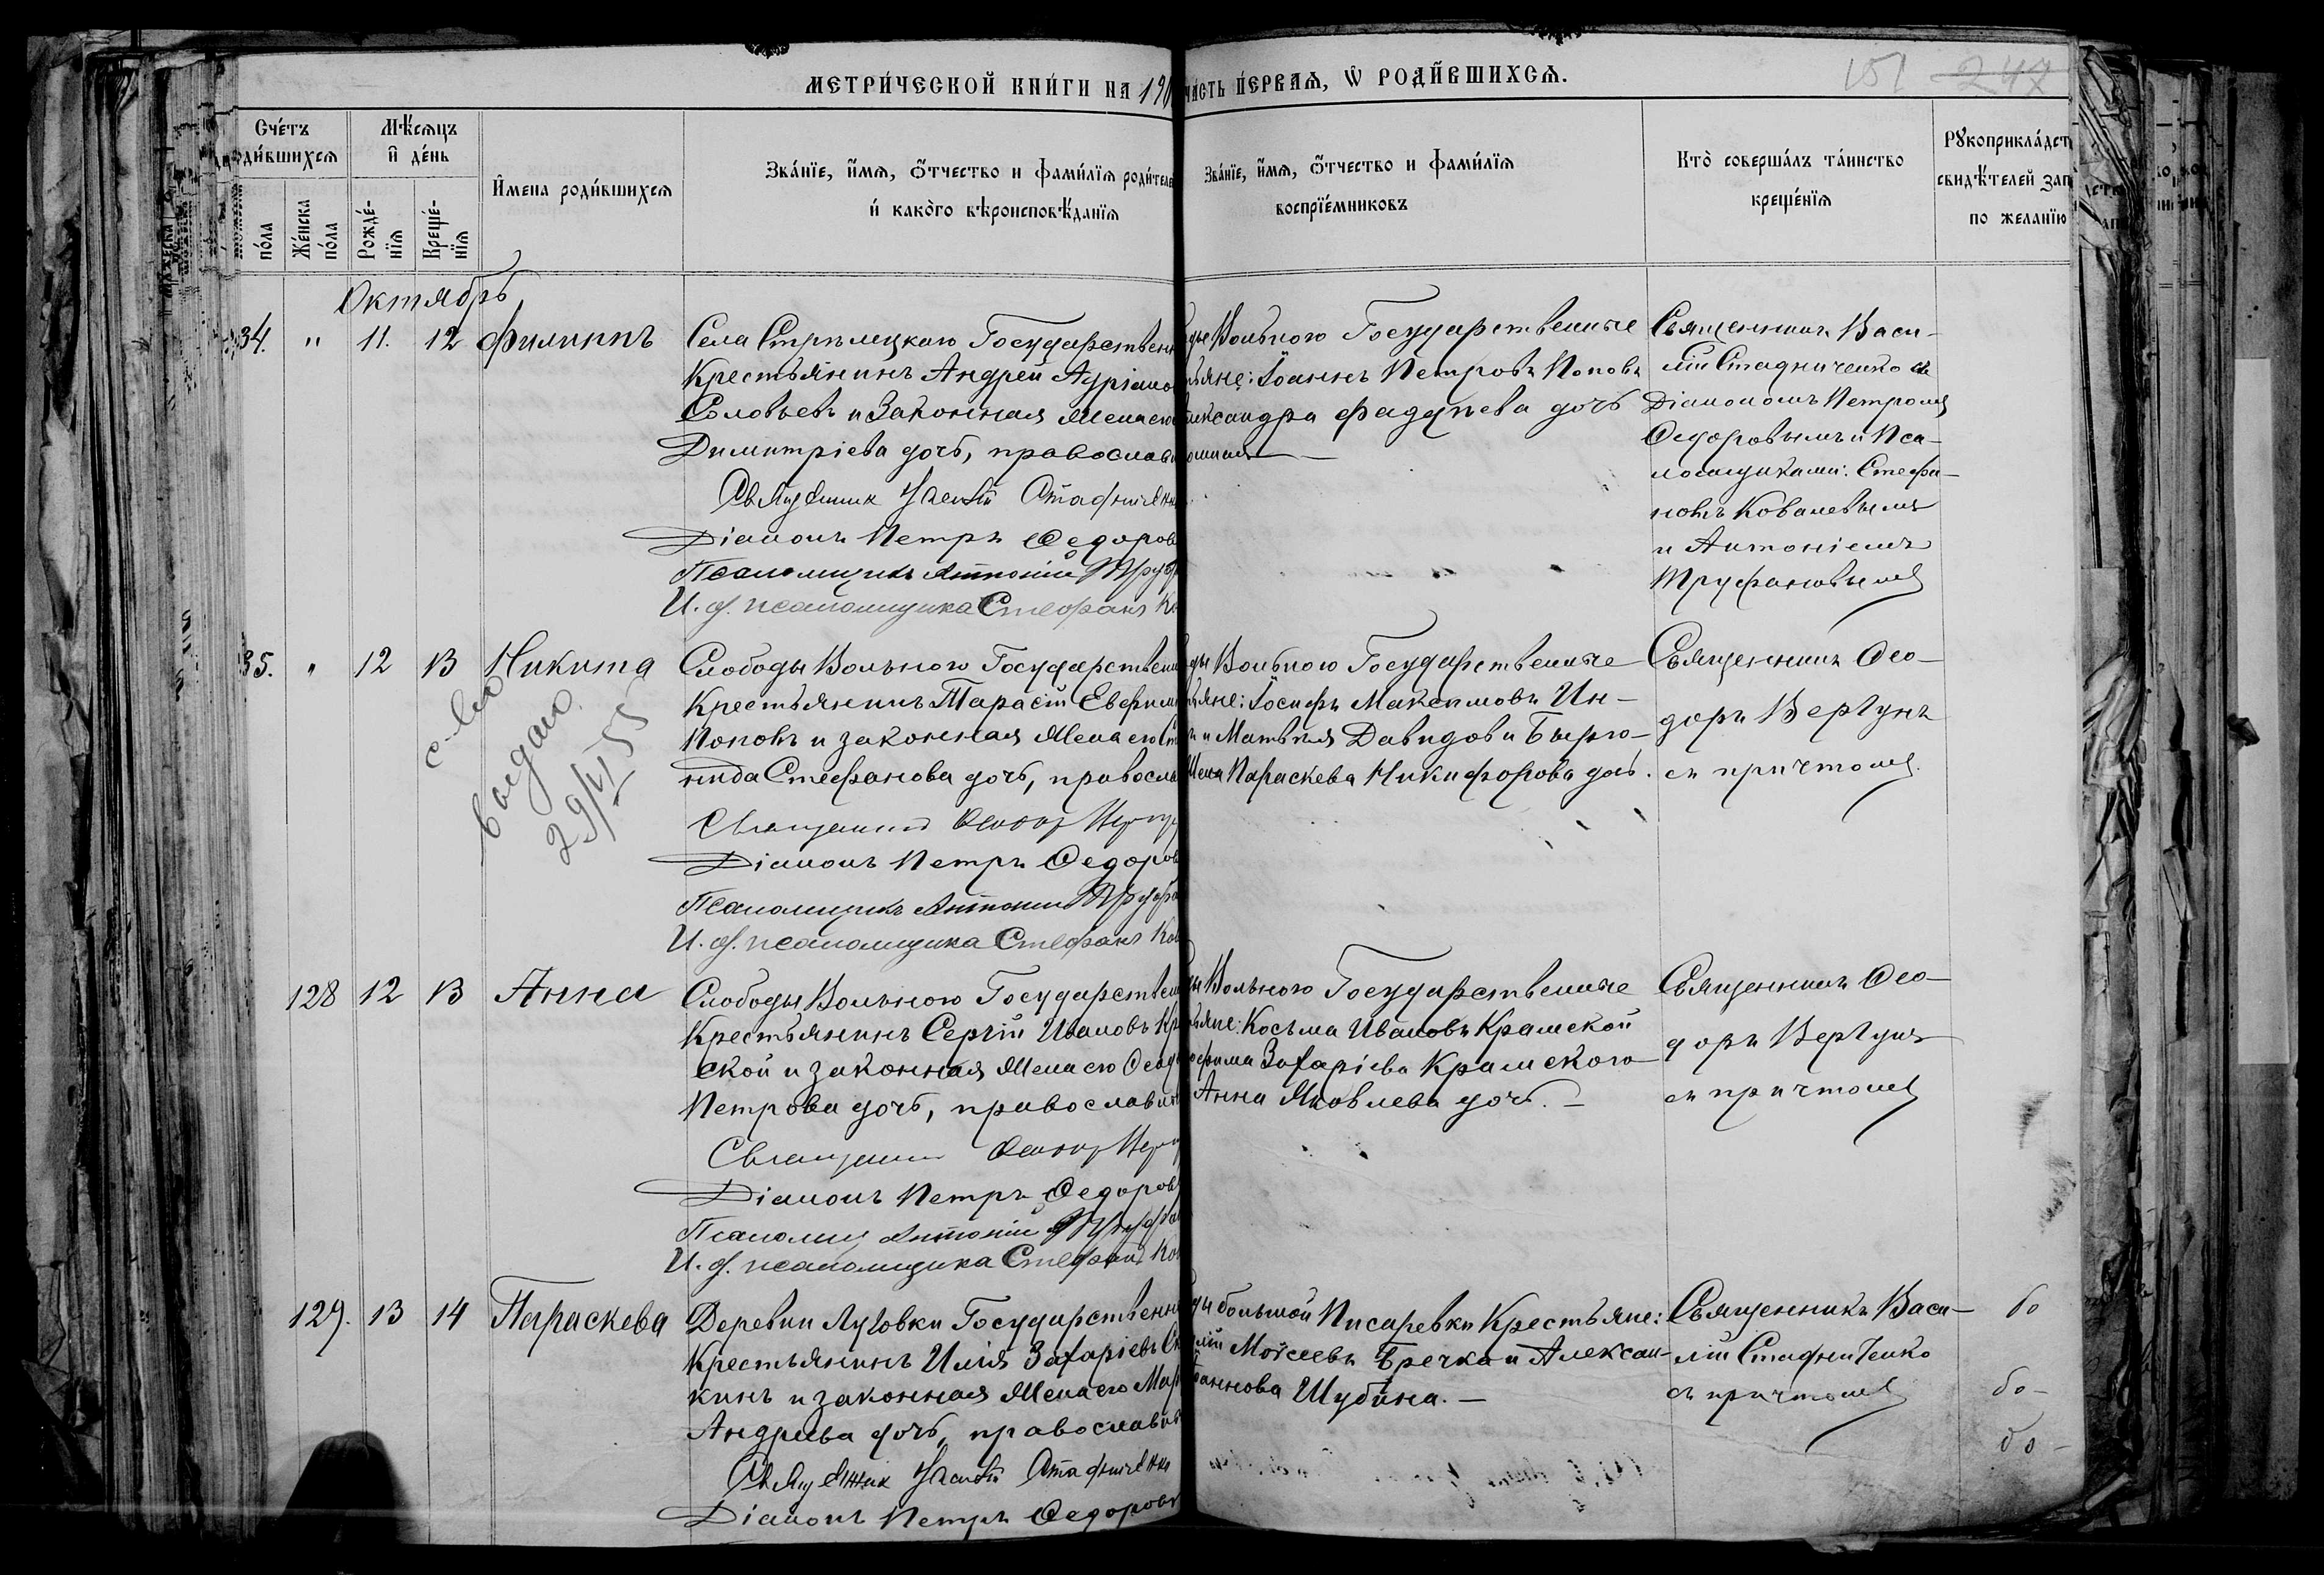 МЕТРИ́ЧЕСКОЙ КНИ́ГИ НА 190
ЧА́СТЬ ПЕ́РВАЯ, Ѡ РОДИ́ВШИХСЯ.
151 247
Сче́тъ
оди́вшихся
Мѣ́сяцъ
и҆ де́нь
И҆мена роди́вшихся
Зва́нїе, и҆́мя, ѻ҆́тчество и фами́лїя роди́теле
и҆ како́го вѣроисповѣ́данїя
Зва́нїе, и҆́мя, ѻ҆́тчество и фами́лїя
воспрїе́мниковъ
Кто̀ соверша́лъ та́инство
креще́нїя
Рꙋкоприкла́дст
свидѣ́телей зап
по жела́нїю
по́ла
Же́нска
по́ла
Рожде́-
нїя
Креще́-
нїя
Октябрь
34. " 11. 12 Филиппъ
Села Стрѣлецкаго Государствен
Крестьянинъ Андрей Адріано
Соловьевъ и законная жена его
Димитріева дочь, православ
Священник Василій Стадниченк
Діаконъ Петръ Ѳедоров
Псаломщикъ Антоній Труф
И. д. псаломщика Стефанъ К
ды Вольного Государственные
ьяне: Іоаннъ Петровъ Поповъ
лександра Фаддѣева дочь
Священникъ Васи-
лій Стадниченко съ
Діакономъ Петромъ
Ѳедоровымъ и Пса-
ломщиками: Стефа-
номъ Ковалевымъ
и Антоніемъ
Труфановымъ
35. " 12 13 Никита
с-во
выдано
29/VI 55
Слободы Вольного Государствен
Крестьянинъ Тарасій Евфим
Поповъ и законная жена его
нида Стефанова дочь, правосла
Священник Ѳеодор Вергу
Діаконъ Петръ Ѳедоров
Псаломщикъ Антоній Труфа
И. д. псаломщика Стефанъ Ков
ды Вольного Государственные
ьяне: Іосифъ Максимовъ Ин-
и Матвѣя Давидова Бырго-
жена Параскева Никифорова дочь.
Священникъ Ѳео-
доръ Вергунъ
съ причтомъ.
128 12 13 Анна
Слободы Вольного Государствен
Крестьянинъ Сергій Ивановъ Кр
ской и законная жена его Ѳеод
Петрова дочь, православн
Священник Ѳеодор Верг
Діаконъ Петръ Ѳедоров
Псаломщ Антоній Труфа
И. д. псаломщика Стефанъ Ков
ды Вольного Государственные
ьяне: Косьма Ивановъ Крамской
офима Захаріева Крамского
Анна Яковлева дочь. –
Священникъ Ѳео-
доръ Вергунъ
съ причтомъ
129. 13 14 Параскева
Деревни Луговки Государственн
Крестьянинъ Илія Захаріевъ
кинъ и законная жена его Мар
Андреева дочь, православн
Священник Василій Стадниченко
Діаконъ Петръ Ѳедоровъ
ды большой Писаревки Крестьяне:
лій Моѵсеевъ Бречка и Алексан-
аннова Шубина. –
Священникъ Васи-
лій Стадниченко
съ причтомъ